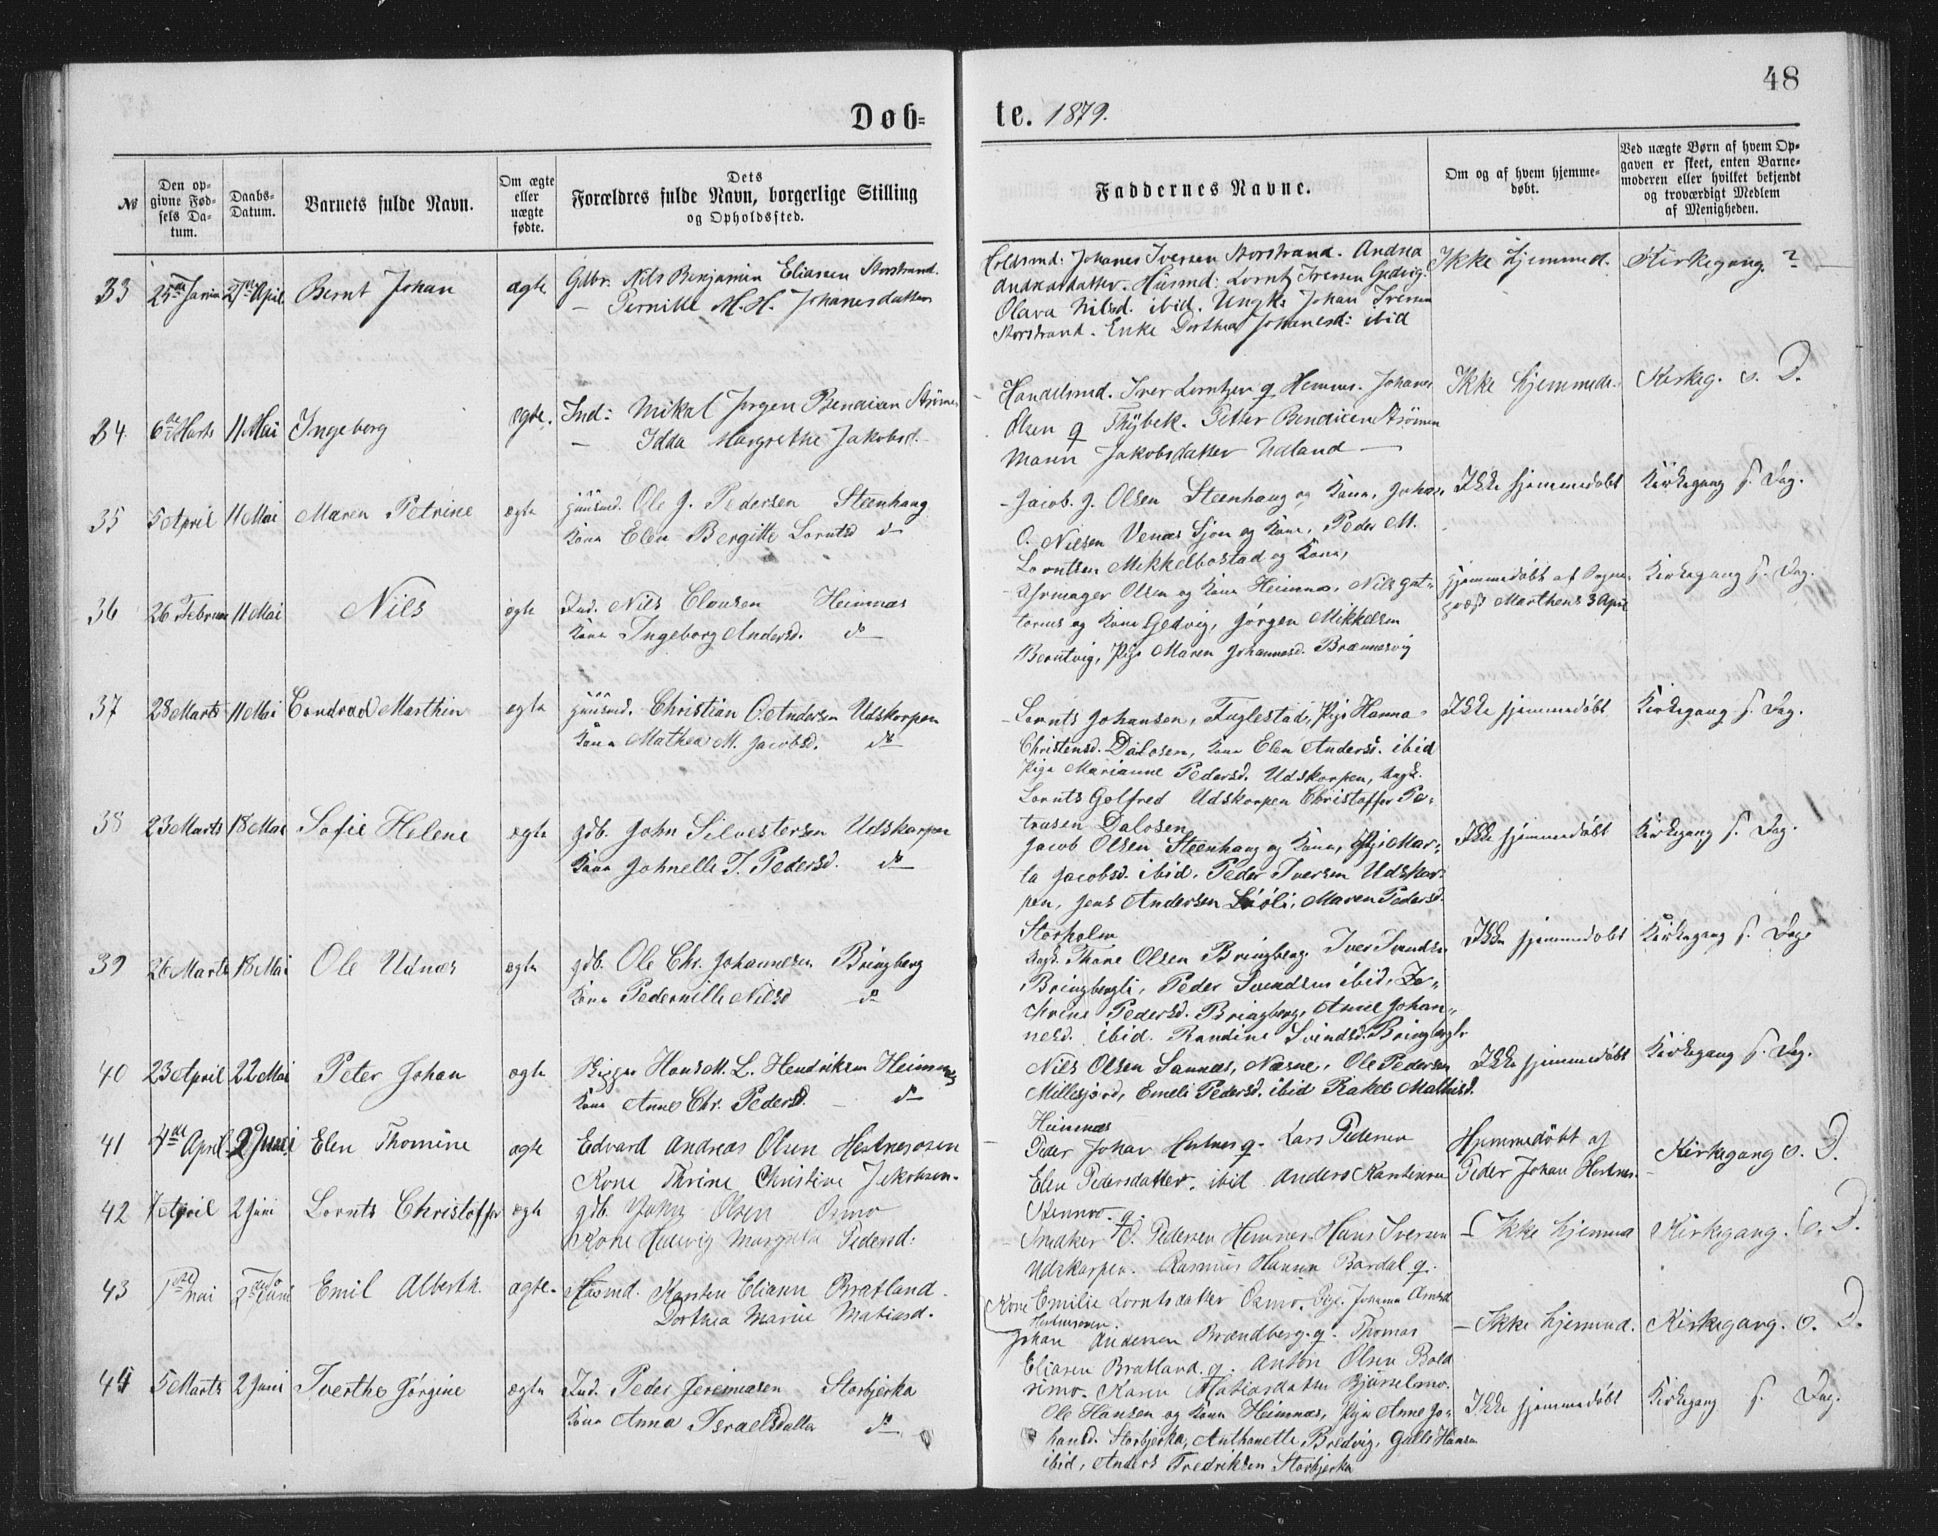 48
Døb=
te. 1879.
№
Den op-
givne Fød-
sels Da-
tum.
Daabs-
Datum.
Barnets fulde Navn.
Om ægte
eller
nægte
fødte.
Dets
Forældres fulde Navn, borgerlige Stilling
og Opholdssted.
Faddernes Navne.
Om og af hvem hjemme-
døbt.
Ved nægte Børn af hvem Op-
gaven er skeet, enten Barne-
moderen eller hvilket bekjendt
og troværdigt Medlem
af Menigheden.
33 27 April Bernt Johan ægte Gdbr. Nils Benjamin Eliasen Storstrand.
— Pernille M. H. Johanesdatter
Johanes Iversen Storstrand. Andrea
Andreasdatter. Huusmd: Lorntz Iversen Gedvig.
Olava Nilsd. ibid. Ungk. Johan Iversen
Storstrand. Enke Dorthea Johanesd: ibid
Ikke hjemmed. Kirkegang ? —
34 6te Marts 11 Mai Ingeborg ægte. Ind: Mikal Jørgen Bendixen
— Idda Margrethe Jakobsd.
Handelsmd. Iver Lorntzen Hemnes. Johanes
Olsen Thybek. Petter Bendicen
Maren Jakobsdatter Udland —
Ikke hjemmed. Kirkeg. s. D.
35 5 April 11 Mai Maren Petrine ægte Huusmd. Ole J. Pedersen Steenhaug
Kone Elen Bergitte Lorntsd do
Jacob J. Olsen Steenhaug og Kone, Johan
O. Nilsen Venæs Sjon og Kone, Peder M.
Lorntsen Mikkelbostad og Kone,
Ikke hjemmedøbt Kirkegang s. Dag.
36 26 Februar 11 Mai Nils ægte Ind. Nils Clausen Heimnæs
Kone Ingeborg Andersd. do
Uhrmager Olsen og Kone Heimnæs, Nils
og Kone Gedvig, Jørgen Mikkelsen
Berntvig, Pige Maren Johannesd. Brænnesvig
hjemmedøbt af Sogne-
præst Marthens 3 April
Kirkegang s. Dag.
37 28 Marts 11 Mai Condrad Marthin ægte Huusmd. Christian O. Andersen Udskarpen
Kone Mathea M. Jacobsd. do
Lornts Johansen, Fuglestad, Pige Hanna
Christensd. Dalosen, Kone Elen Andersd. ibid
Pige Marianne Pedersd. Udskarpen, Ungk.
Lornts Golfred Udskarpen Christoffer Pe-
trusen Dalosen
Ikke hjemmedøbt Kirkegang s. Dag.
38 23 Marts 18 Mai Sofie Helene ægte gdb. John Silvestersen Udskarpen
Kone Johnelle T. Pedersd. do
Jacob Olsen Steenhaug og Kone, Pige Mar-
ta Jacobsd. ibid. Peder Iversen Udskar-
pen, Jens Andersen, Maren Pedersd.
Storholm
Ikke hjemmedøbt Kirkegang s. Dag.
39 26 Marts 18 Mai Ole Udnæs ægte gdb. Ole Chr. Johannesen Bringberg
Kone Pedernille Nilsd do
Ungk. Thore Olsen Bringberg. Iver Svendsen
Bringbergli, Peder Svendsen ibid,
Pedersd. Bringberg, Anne Johan-
nesd. ibid. Randine Svendsd. Bringbergli
Ikke hjemmedøbt Kirkegang s. Dag
40 23 April 22 Mai Peter Johan ægte Hans M. L. Hendriksen Heimnæs
Kone Anne Chr. Pedersd. do
Nils Olsen Sannæs, Næsne, Ole Pedersen
Millesjord, Emeli Pedersd. ibid Rakel Mathisd.
Heimnæs
Ikke hjemmedøbt Kirkegang s. Dag.
41 4de April 2 Juni Elen Thomine ægte Edvard Andreas Olsen Hestnesosen
Kone Thrine Christine Jakobsen.
Peder Johan Hestnes. Lars Pedersen
Elen Pedersdatter. ibid Anders Karstensen
Hjemmedøbt af
Peder Johan Hestnes.
Kirkegang s. D.
42 April 2 Juni Lornts Christoffer ægte gdb. John Olsen Osmo
Kone Hedevig Margreta Pedersd:
Snedker O. Pedersen Hemnes. Hans Iversen
Udskarpen. Rasmus Hansen Bardal
Kone Emilie Lorntsdatter Osmo. Pige. Johanna
Ikke hjemmed Kirkegang. s. D.
43 1ste Mai 2den Juni Emil Alberth. ægte. Huusmd. Karsten Eliasen Bratland.
Dorthea Marie Matiasd.
Johan Andersen Brændberg. Thomas
Eliasen Bratland. Anton Olsen
Karen Matiasdatter
— Ikke hjemmed. Kirkegang. s. D.
44 5 Marts 2 Juni Iverthe Jørgine ægte Ind. Peder Jeremiasen Storbjerka
Kone Anna Israelsdatter do
Ole Hansen og Kone Heimnæs, Pige Anne Jo-
hansd. Storbjerka, Anthonette Bredvig, Hansen
ibid, Anders Fredriksen Storbjerka
Ikke hjemmedøbt Kirkegang s. Dag.